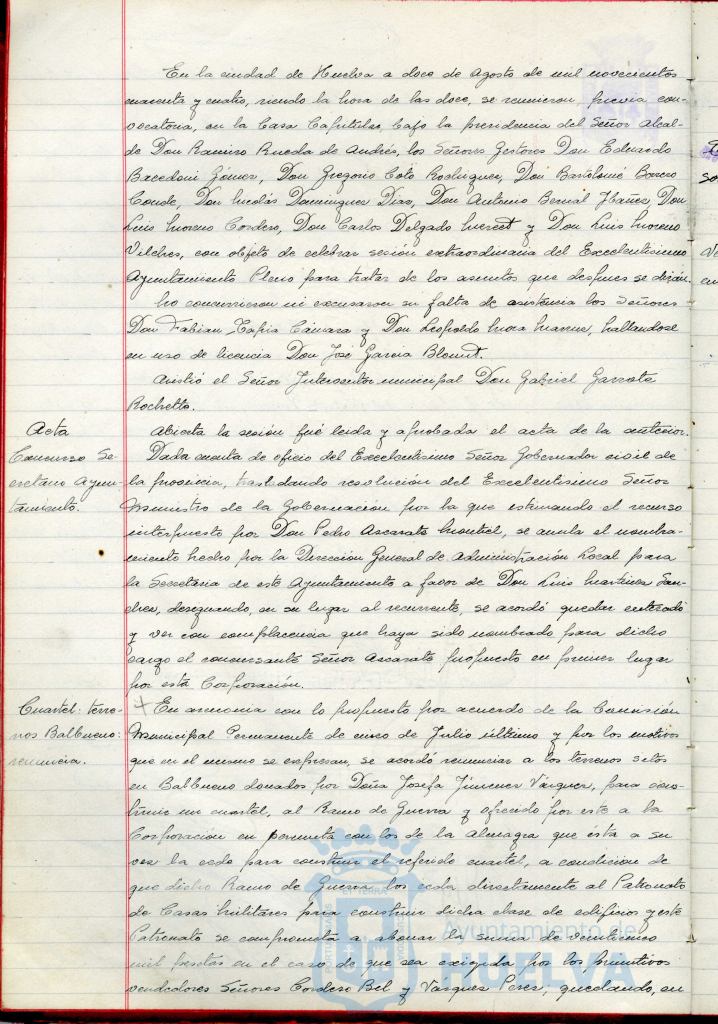 En la ciudad de Huelva a doce de Agosto de mil novecientos
cuarenta y cuatro, siendo la hora de las doce, se reunieron, previa con-
vocatoria, en la Casa Capitular, bajo la presidencia del Señor Alcal-
de Don Ramiro Rueda de Andrés, los Señores Gestores Don Eduardo
Gómez, Don Gregorio Coto Rodríguez, Don Bartolomé Borrero
Conde, Don Nicolás Domínguez Díaz, Don Antonio Bernal Ibañez, Don
Luis Moreno Cordero, Don Carlos Delgado y Don Luis Moreno
Vilches, con objeto de celebrar sesión extraordinaria del Excelentísimo
Ayuntamiento Pleno para tratar de los asuntos que despues se dirán.
No concurrieron ni excusaron su falta de asistencia los Señores
Don Fabian Tapia Cámara y Don Leopoldo Mora, hallandose
en uso de licencia Don José Garcia Blount.
Asistió el Señor Interventor municipal Don Gabriel Garrote
Rochette.
Acta
Abierta la sesión fué leida y aprobada el acta de la anterior.
Concurso Se-
cretario Ayun-
tamiento.
Dada cuenta de oficio del Excelentísimo Señor Gobernador civil de
la provincia, trasladando resolución del Excelentísimo Señor
Ministro de la Gobernación por la que estimando el recurso
interpuesto por Don Pedro Ascarate Montiel, se anula el nombra-
miento hecho por la Dirección General de Administración Local para
la Secretaria de este Ayuntamiento a favor de Don Luis Martínez San-
chez, designando, en su lugar al recurrente, se acordó quedar enterado
y ver con complacencia que haya sido nombrado para dicho
cargo el concursante Señor Ascarate propuesto en primer lugar
por esta Corporación.
Cuartel: terre-
nos Balbueno:
renuncia.
+ En armonia con lo propuesto por acuerdo de la Comisión
Municipal Permanente de cinco de Julio último y por los motivos
que en el mismo se expresan, se acordó renunciar a los terrenos sitos
en Balbueno donados por Doña Josefa Jimenez Vázquez, para cons-
truir un cuartel, al Ramo de Guerra y ofrecido por este a la
Corporación en permuta con los de la Almagra que esta a su
vez la cede para construir el referido cuartel, a condición de
que dicho Ramo de Guerra los ceda directamente al Patronato
de Casas Militares para construir dicha clase de edificios y este
Patronato se comprometa a abonar la suma de veinticinco
mil pesetas en el caso de que sea exigida por los primitivos
vendedores Señores Cordero Bel y Vázquez Perez; quedando, en
Ayuntamiento de
HUELVA